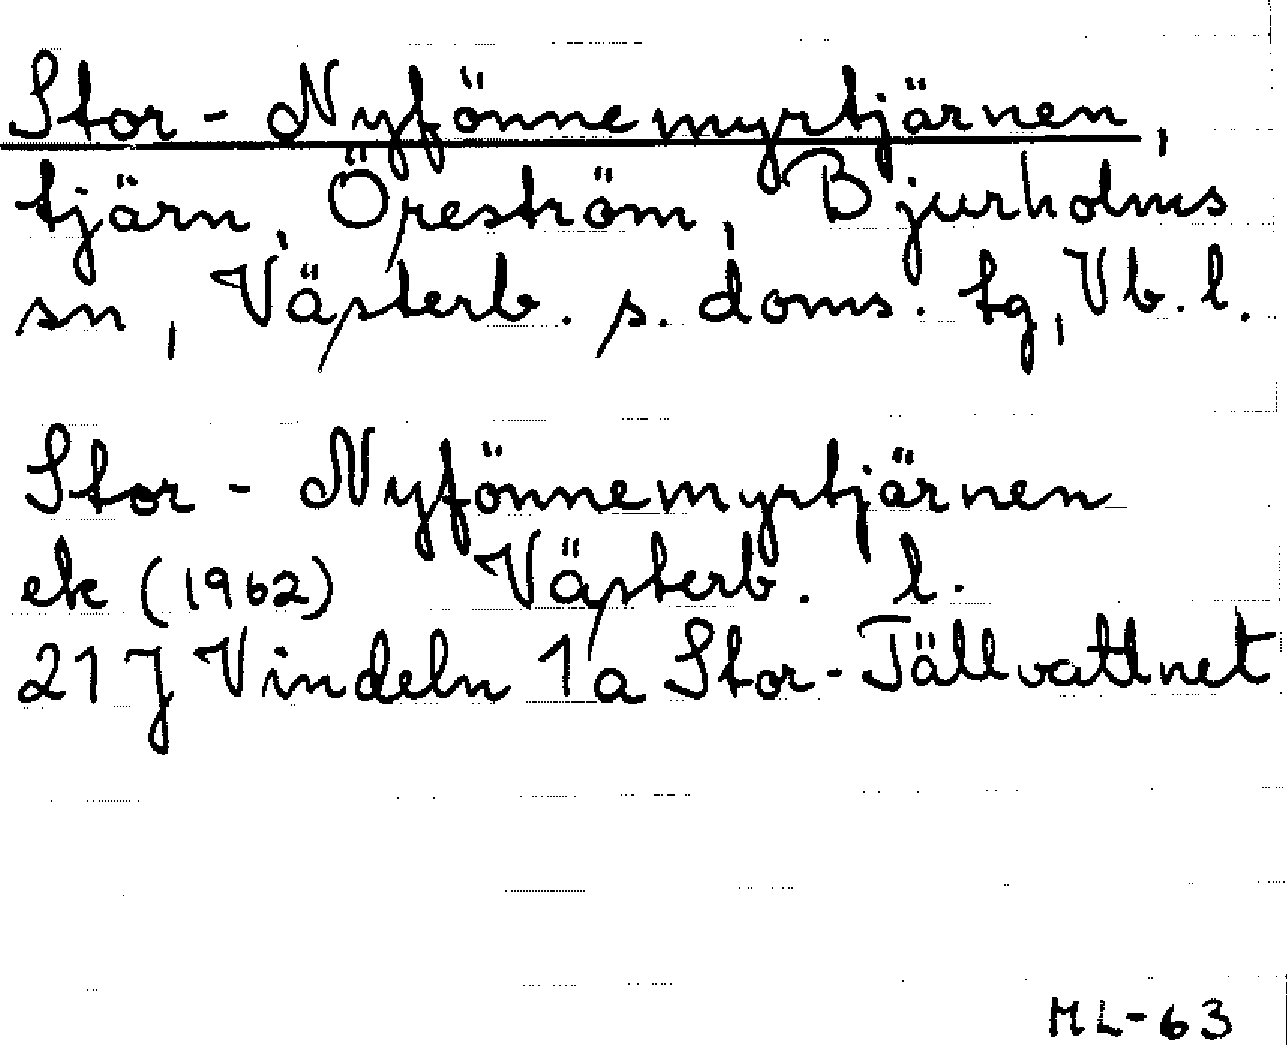 Stor-Nyfönnemyrtjärnen,
tjärn, Öreström, Bjurholms
sn, Västerb. s. doms. tg, Vb. l.
Stor-Nyfönnemyrtjärnen
ek (1962) Västerb. l.
21 J Vindeln 1a Stor-Tällvattnet
ML-63